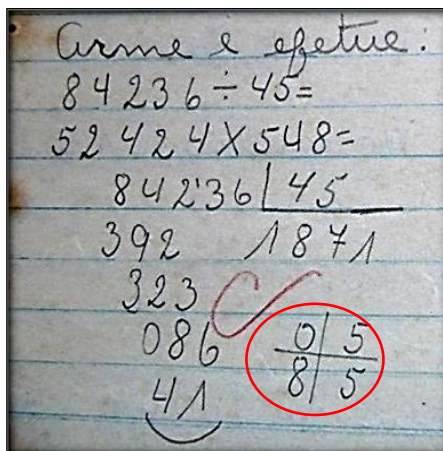 Arme e efetue:
84236÷45=
52424X548=
84236 45
392 1871
323
086 0 5
41 8 5